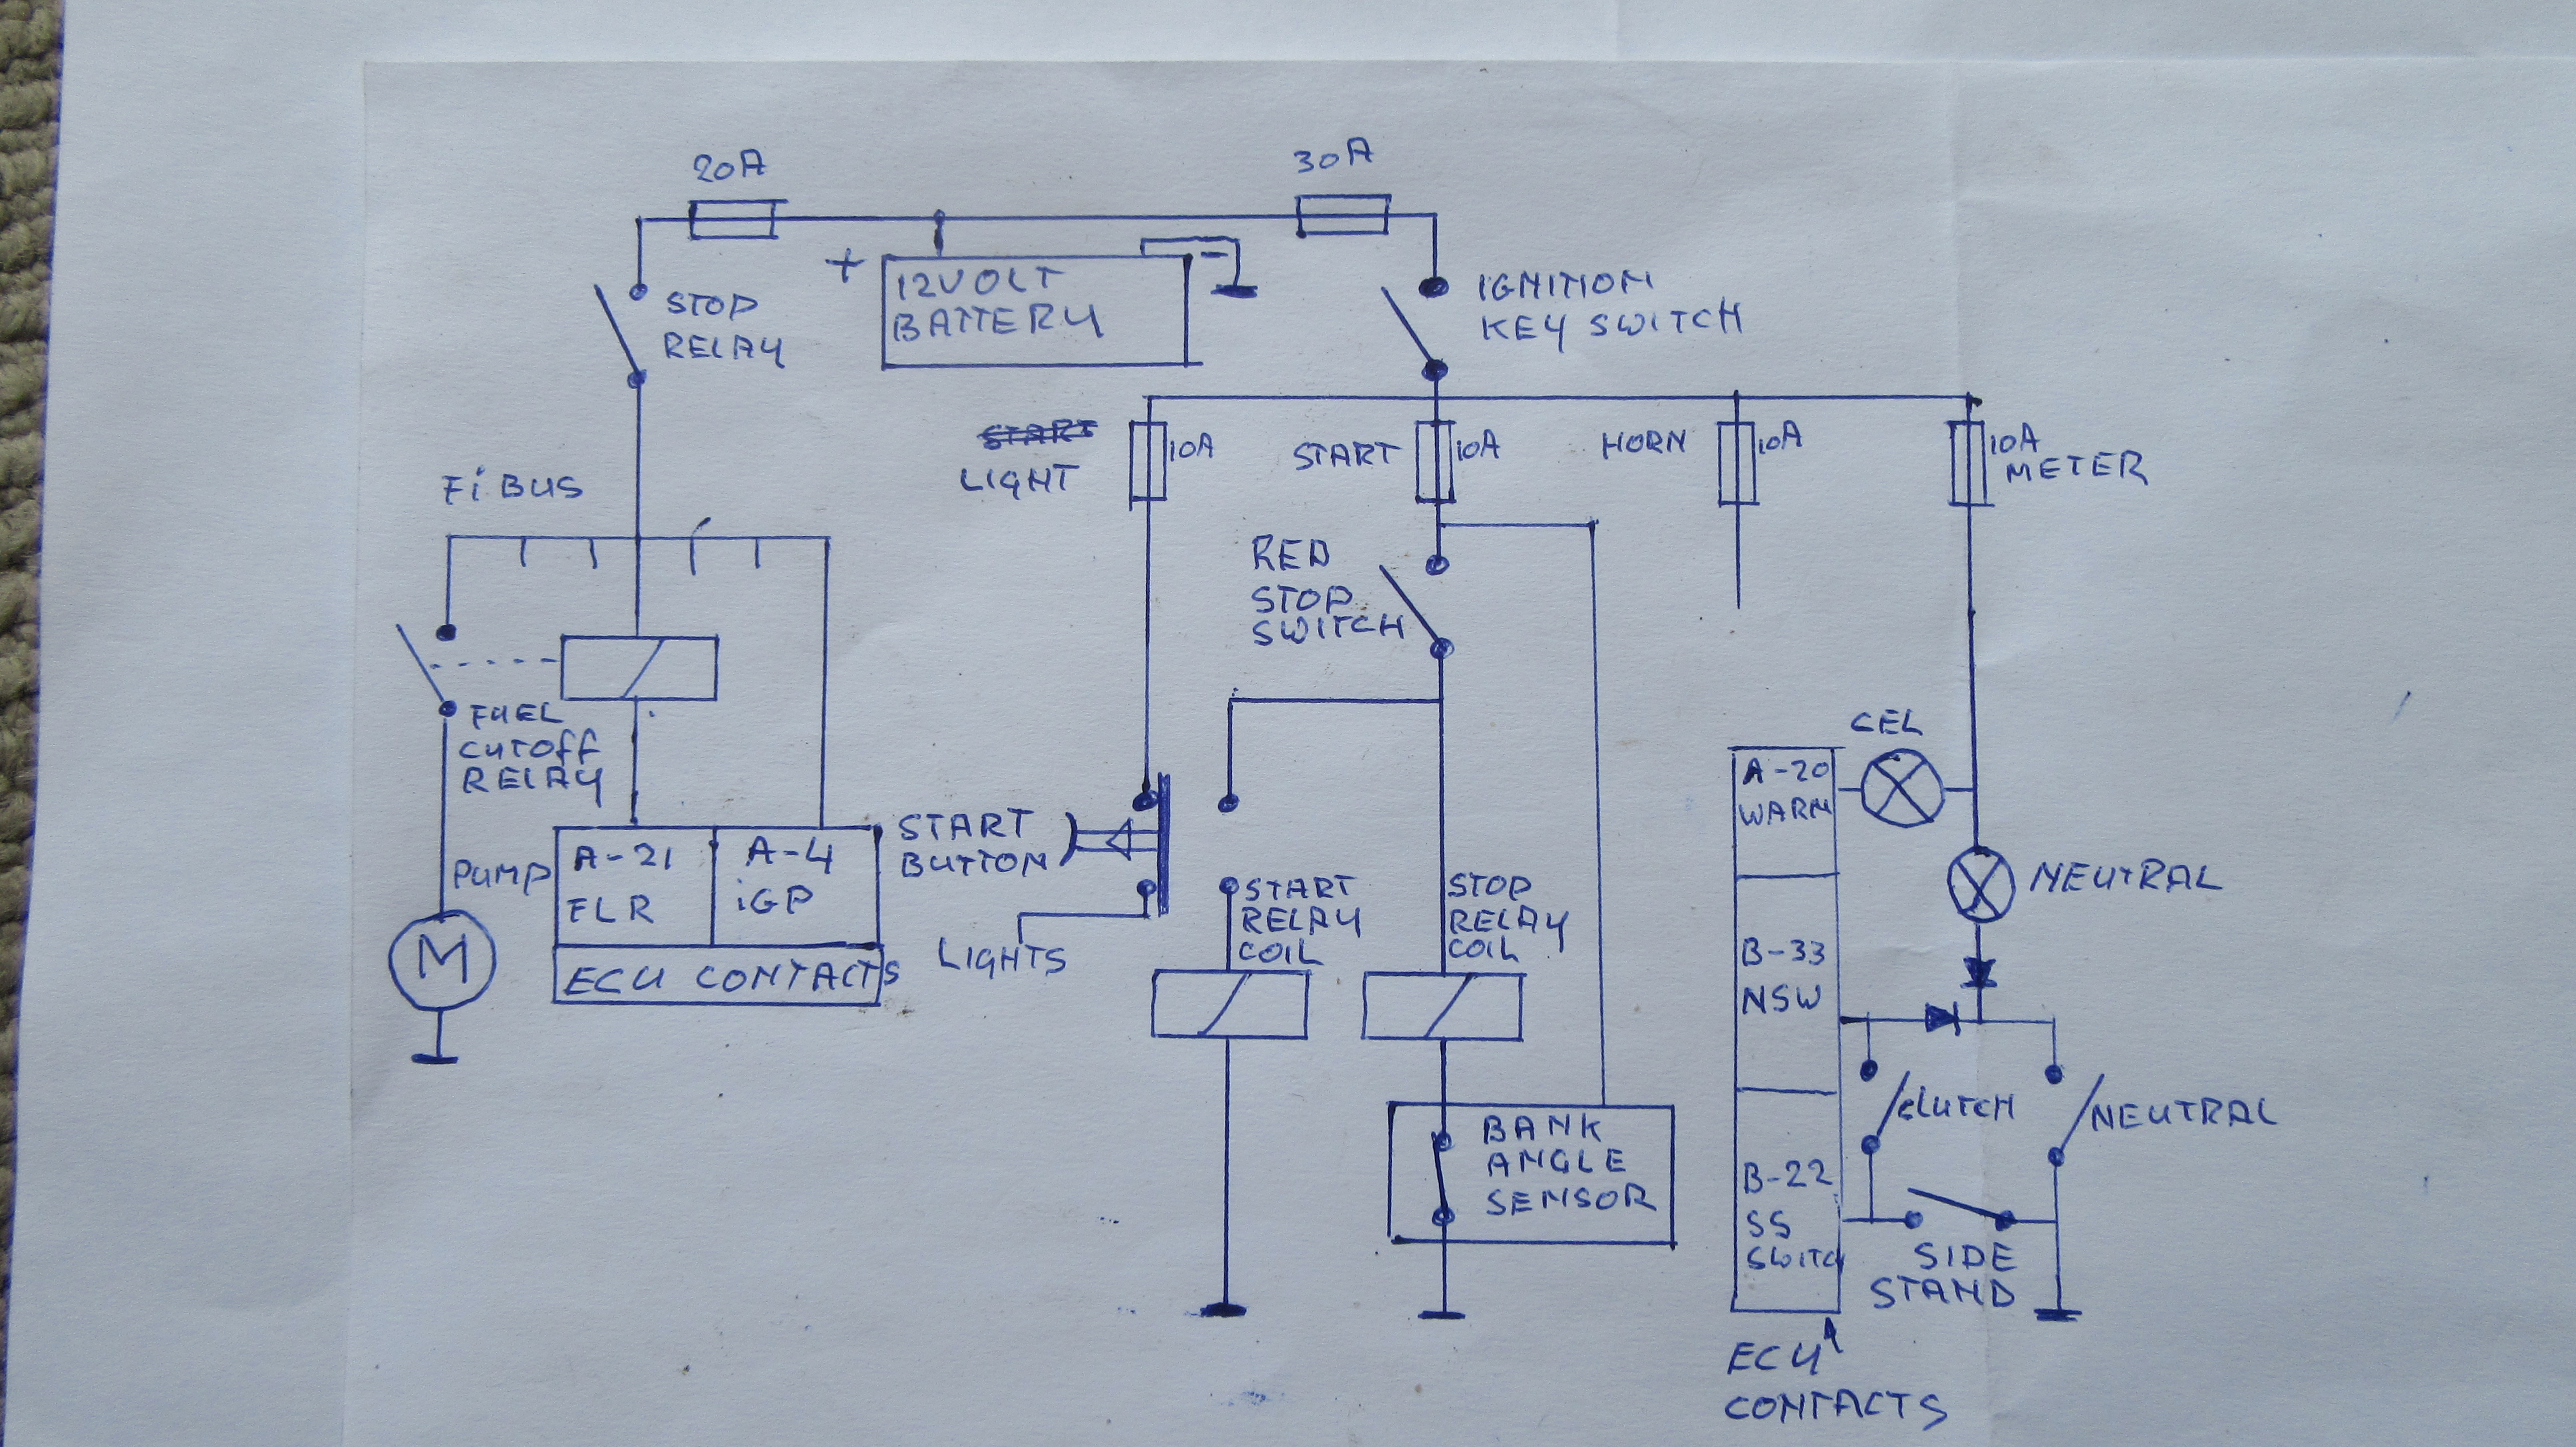 20A
30A
+
-
12VOLT
BATTERY
STOP
RELAY
IGNITION
KEY SWITCH
START
LIGHT
10A
START
10A
HORN
10A
10A
METER
Fi BUS
RED
STOP
SWITCH
FUEL
CUTOFF
RELAY
PUMP
M
A-21
FLR
A-4
iGP
ECU CONTACTS
START
BUTTON
LIGHTS
START
RELAY
COIL
STOP
RELAY
COIL
BANK
ANGLE
SENSOR
CEL
A-20
WARN
NEUTRAL
B-33
NSW
CLUTCH
NEUTRAL
B-22
SS
SWITCH
SIDE
STAND
ECU
CONTACTS